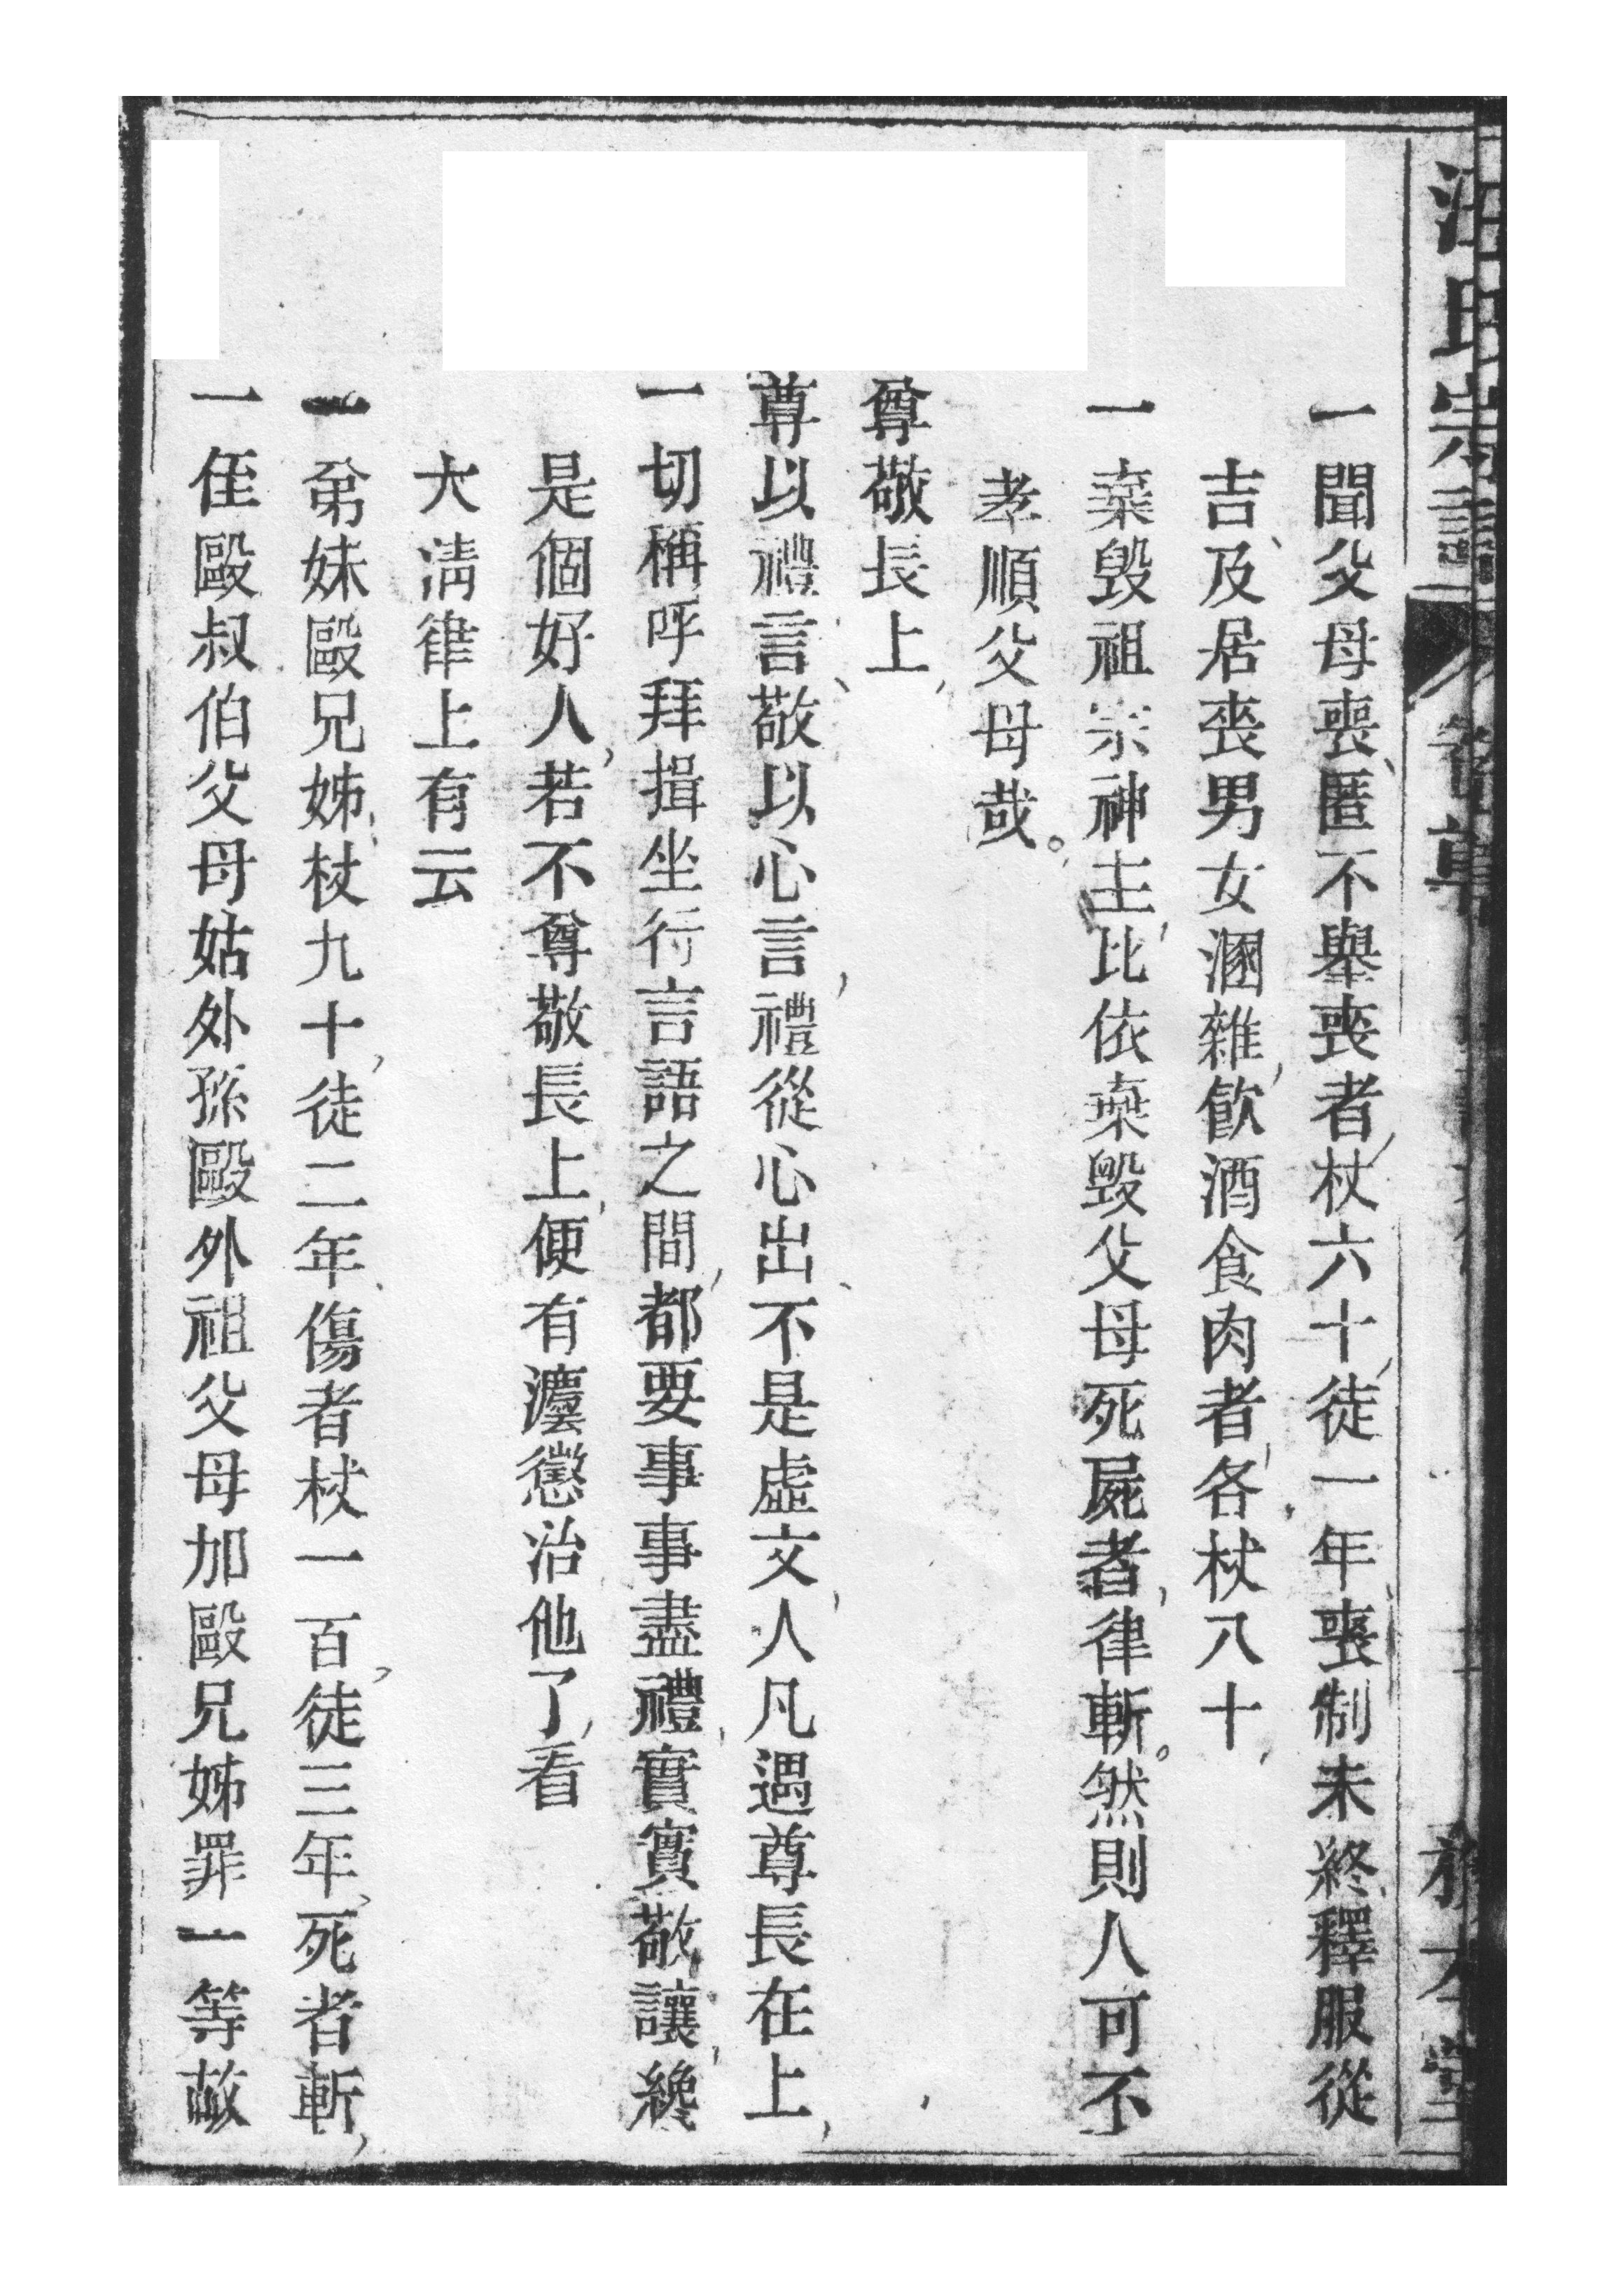 汪氏宗譜 卷首
一聞父母喪匿不舉喪者杖六十徒一年喪制未終釋服從
吉及居喪男女溷雜飮酒食肉者各杖八十
一棄毁祖宗神主比依棄毁父母死屍者律斬。然則人可不
孝順父母哉。
尊敬長上
尊以禮言敬以心言禮從心出不是虛文人凡遇尊長在上
一切稱呼拜揖坐行言語之間都要事事盡禮實實敬讓纔
是個好人若不尊敬長上便有灋懲治他了看
大淸律上有云
一弟妹毆兄姊杖九十徒二年傷者杖一百徒三年死者斬
一侄毆叔伯父母姑外孫毆外祖父母加毆兄姊罪一等故